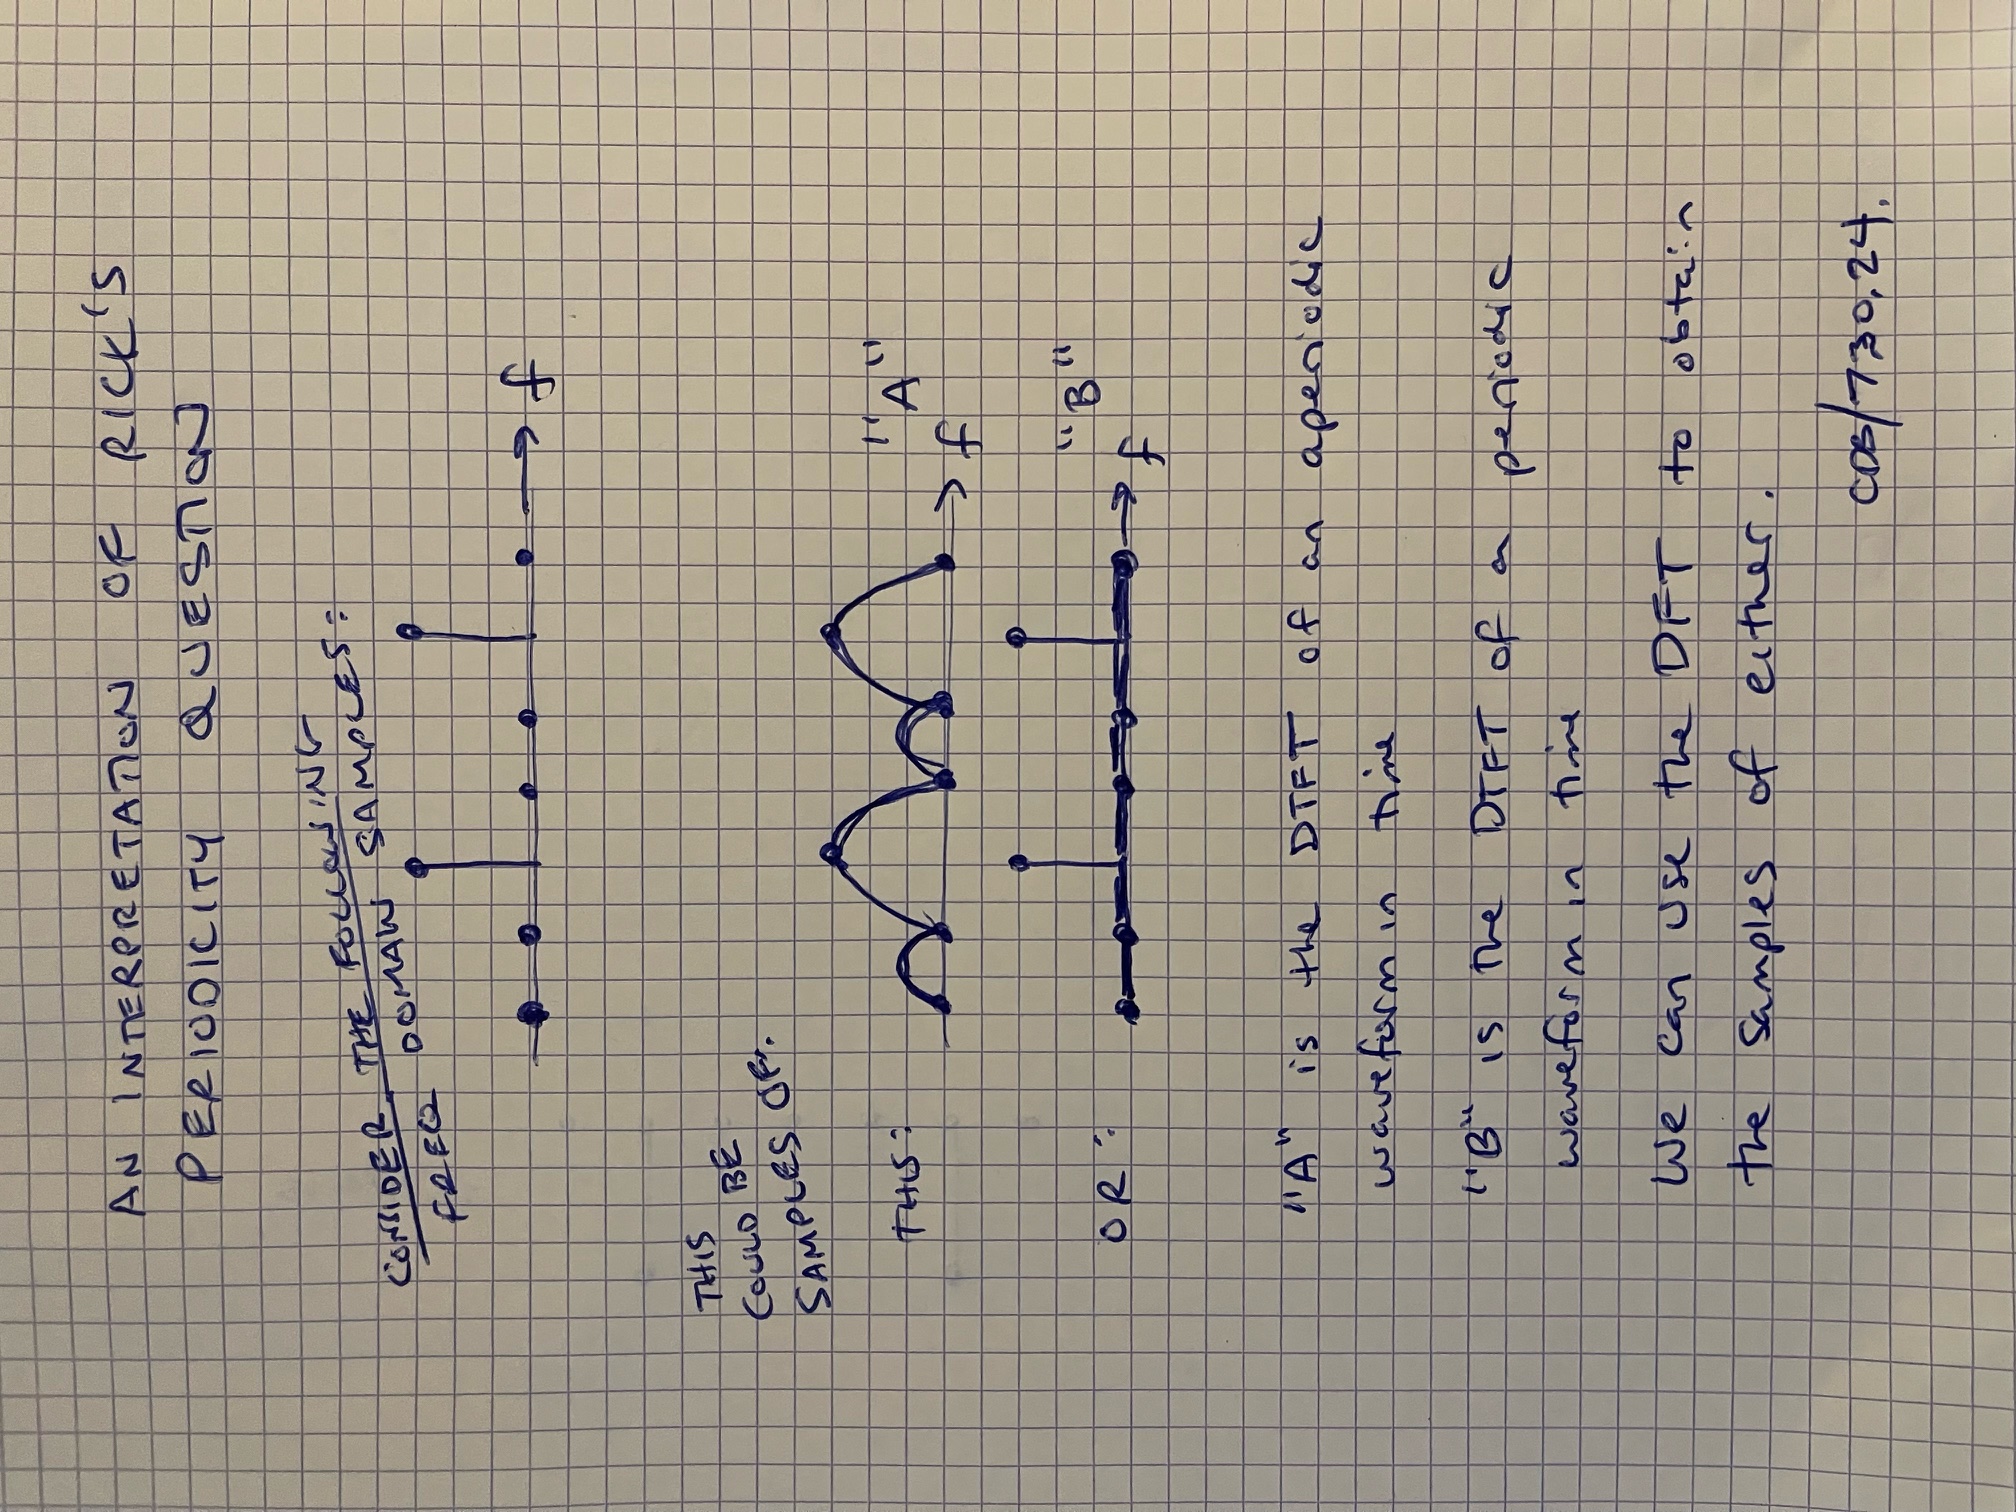 AN INTERPRETATION OF RICK'S
PERIODICITY QUESTION
CONSIDER THE FOLLOWING
FREQ DOMAIN SAMPLES:
f
THIS
COULD BE
SAMPLES OF:
THIS:
"A"
f
OR:
"B"
f
"A" is the DTFT of an aperiodic
waveform in time
"B" is the DTFT of a periodic
waveform in time
We can use the DFT to obtain
the samples of either.
/730.24.